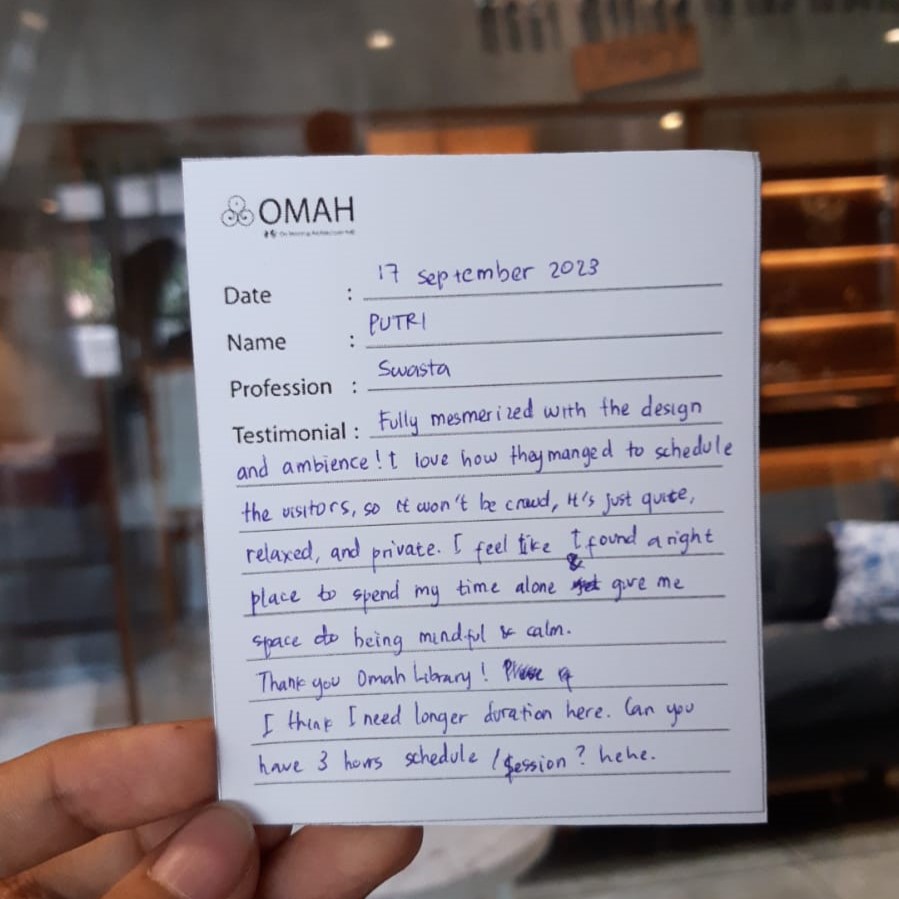 OMAH
Date : 17 September 2023
Name : PUTRI
Profession : Swasta
Testimonial : Fully mesmerized with the design
and ambience! I love how they manged to schedule
the visitors, so it won't be crowd, it's just quite,
relaxed, and private. I feel like I found a right
place to spend my time alone & give me
space to being mindful & calm.
Thank you Omah Library!
I think I need longer duration here. Can you
have 3 hours schedule / session? hehe.